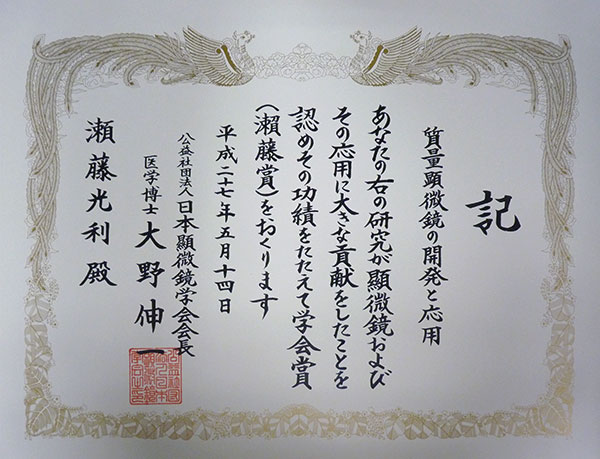 記
質量顕微鏡の開発と応用
あなたの右の研究が顕微鏡および
その応用に大きな貢献をしたことを
認めその功績をたたえて学会賞
（瀬藤賞）をおくります
平成二十七年五月十四日
公益社団法人日本顕微鏡学会会長
医学博士 大野伸一
瀬藤光利殿